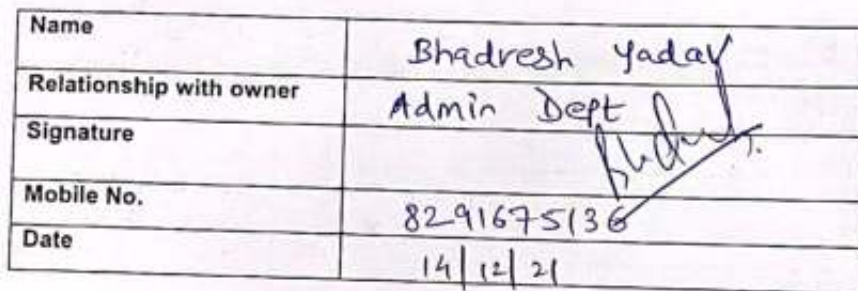 Name Bhadresh Yadav
Relationship with owner Admin Dept
Signature
Mobile No. 8291675136
Date 14/12/21